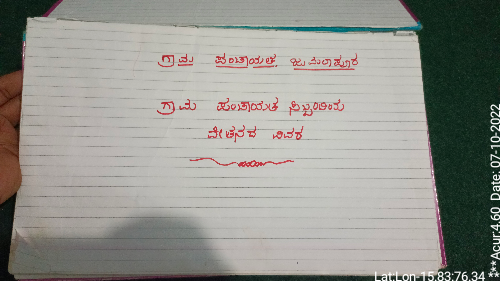 ಗ್ರಾಮ ಪಂಚಾಯತ ಜುಮಲಾಪೂರ
ಗ್ರಾಮ ಪಂಚಾಯತ ಸಿಬ್ಬಂದಿಯ
ವೇತನದ ವಿವರ
Lat:Lon-15.83:76.34
***Acur:4.60 Date: 07-10-2022